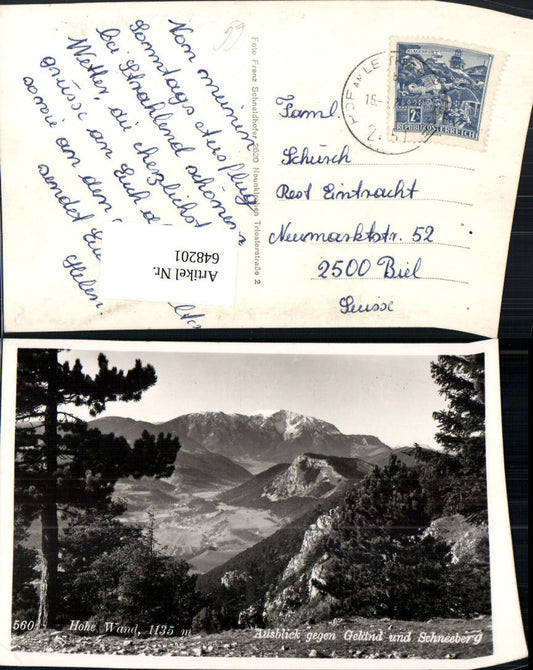 59
Vom meinem
Sonntags Ausflug
bei Strahlend schönem
Wetter, die herzlichst
grüsse an Euch
sowie an dem
sendet
Helen.
Foto Franz Schneidhofer 2620 Neunkirchen Triesterstraße 2
2 S
REPUBLIK ÖSTERREICH
Faml.
Schürch
Rest Eintracht
Neumarktstr. 52
2500 Biel
Suisse
Artikel Nr.
648201
560
Hohe Wand, 1135 m
Ausblick gegen Geländ und Schneeberg